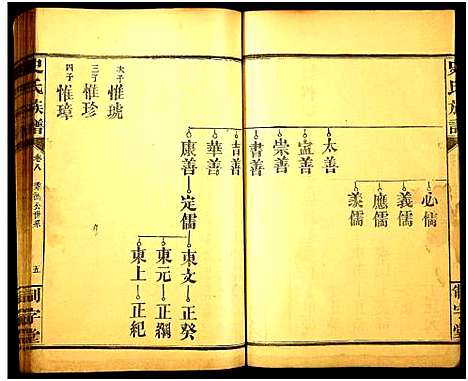 史氏族譜
心儒
義儒
應儒
羨儒
太善
宣善
崇善
書善
吉善
華善
康善
定儒
東文
正癸
東元
正綱
東上
正紀
次子 惟琥
三子 惟珍
四子 惟璋
史氏族譜
卷八
五